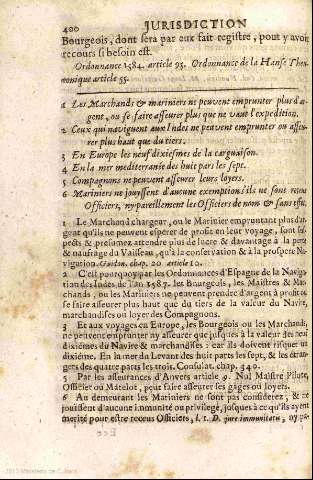 400 JURISDICTION
Bourgeois, dont sera par eux fait registre, pour y avoir
recours si besoin est.
Ordonnance 1584. article 95. Ordonnance de la Hanse Theu-
tonique article 55.
1 Les Marchands & mariniers ne peuvent emprunter plus d'ar-
gent, ou se faire asseurer plus que ne vaut l'expedition.
2 Ceux qui naviguent aux Indes ne peuvent emprunter ou asseu-
rer plus haut que du tiers.
3 En Europe les neuf dixiesmes de la carguaison.
4 En la mer mediterranée des huit pars les sept.
5 Compagnons ne peuvent asseurer leurs loyers.
6 Mariniers ne jouissent d'aucune exemption s'ils ne sont receus
Officiers, ny pareillement les Officiers de nom & sans effet.
1 Le Marchand chargeur, ou le Marinier empruntant plus d'ar-
gent qu'ils ne peuvent esperer de profit en leur voyage, sont sus-
pects & presumez attendre plus de lucre & davantage à la perte
& naufrage du Vaisseau, qu'à la conservation & à la prospere Na-
vigation. Guidon, chap. 20 article 10.
2 C'est pourquoy par les Ordonnances d'Espagne de la Naviga-
tion des Indes de l'an 1587. les Bourgeois, les Maistres & Mar-
chands, ou les Mariniers ne peuvent prendre d'argent à profit ou
se faire asseurer plus haut que du tiers de la valeur du Navire,
marchandises ou loyer des Compagnons.
3 Et aux voyages en Europe, les Bourgeois ou les Marchands,
ne peuvent emprunter ny asseurer que jusques à la valeur des neuf
dixiémes du Navire & marchandises : car ils doivent risquer un
dixiéme. En la mer du Levant des huit parts les sept, & les étran-
gers des quatre parts les trois. Consulat. chap. 340.
5 Par les asseurances d'Anvers article 9. Nul Maistre Pilote,
Officier ou Matelot, peut faire asseurer ses gages ou loyers.
6 Au demeurant les Mariniers ne sont considerez, & ne
jouissent d'aucune immunité ou privilege, jusques à ce qu'ils ayent
merité pour estre receus Officiers, l. 1. D. jure immunitatis, ny pa-
Ece
2013 Ministerio de Cultura